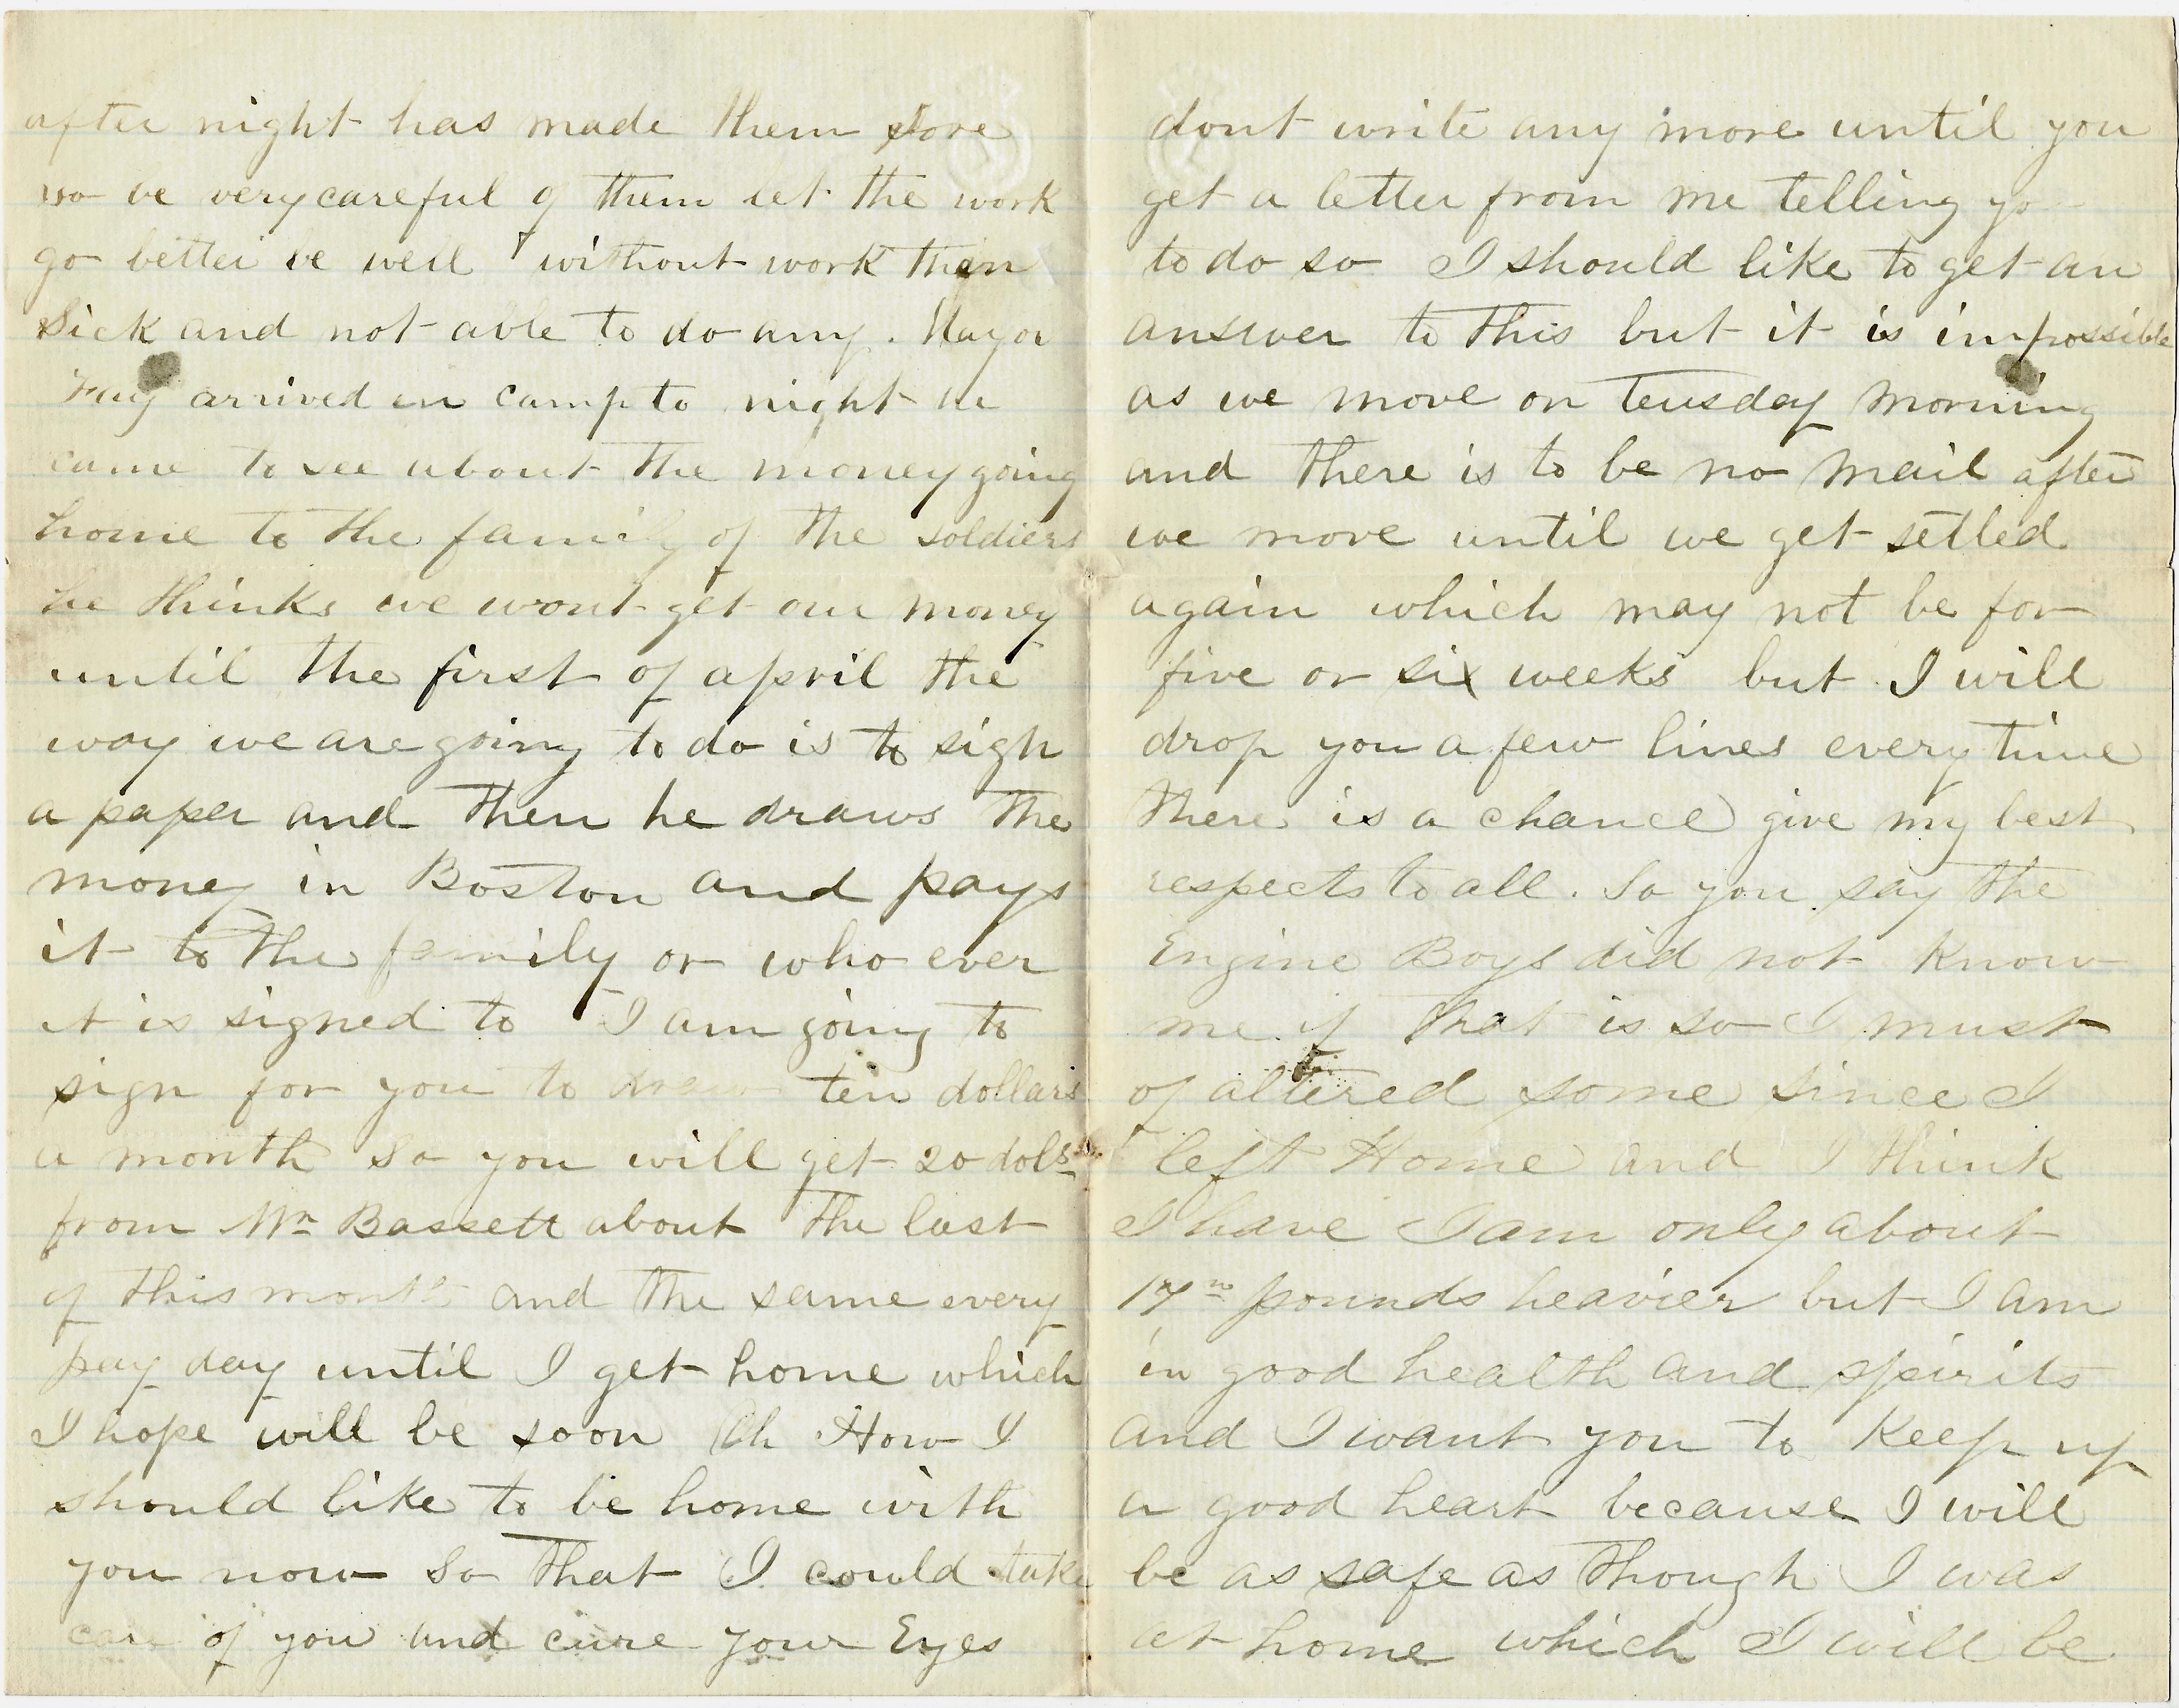 after night has made them sore
so be very careful of them let the work
go better be well without work than
Sick and not able to do any. Mayor
Fay arrived in camp to night he
came to see about the money going
home to the family of the soldiers
he thinks we wont get our money
until the first of april the
way we are going to do is to sigh
a paper and then he draws the
money in Boston and pays
it to the family or who ever
it is signed to I am going to
sign for you to draw ten dollars
a month So you will get 20 dols
from Mr Bassett about the last
of this month and the same every
pay day until I get home which
I hope will be soon Oh How I
should like to be home with
you now So that I could take
care of you and cure your Eyes
dont write any more until you
get a letter from me telling yo
to do so I should like to get an
answer to this but it is impossible
as we move on Teusday morning
and there is to be no mail after
we move until we get setled
again which may not be for
five or six weeks but I will
drop you a few lines every time
there is a chance give my best
respects to all. So you say the
Engine Boys did not Know
me if that is so I must
of altered some since I
left Home and I think
I have I am only about
17 pounds heavier but I am
in good health and spirits
and I want you to Keep up
a good heart because I will
be as safe as though I was
at home which I will be